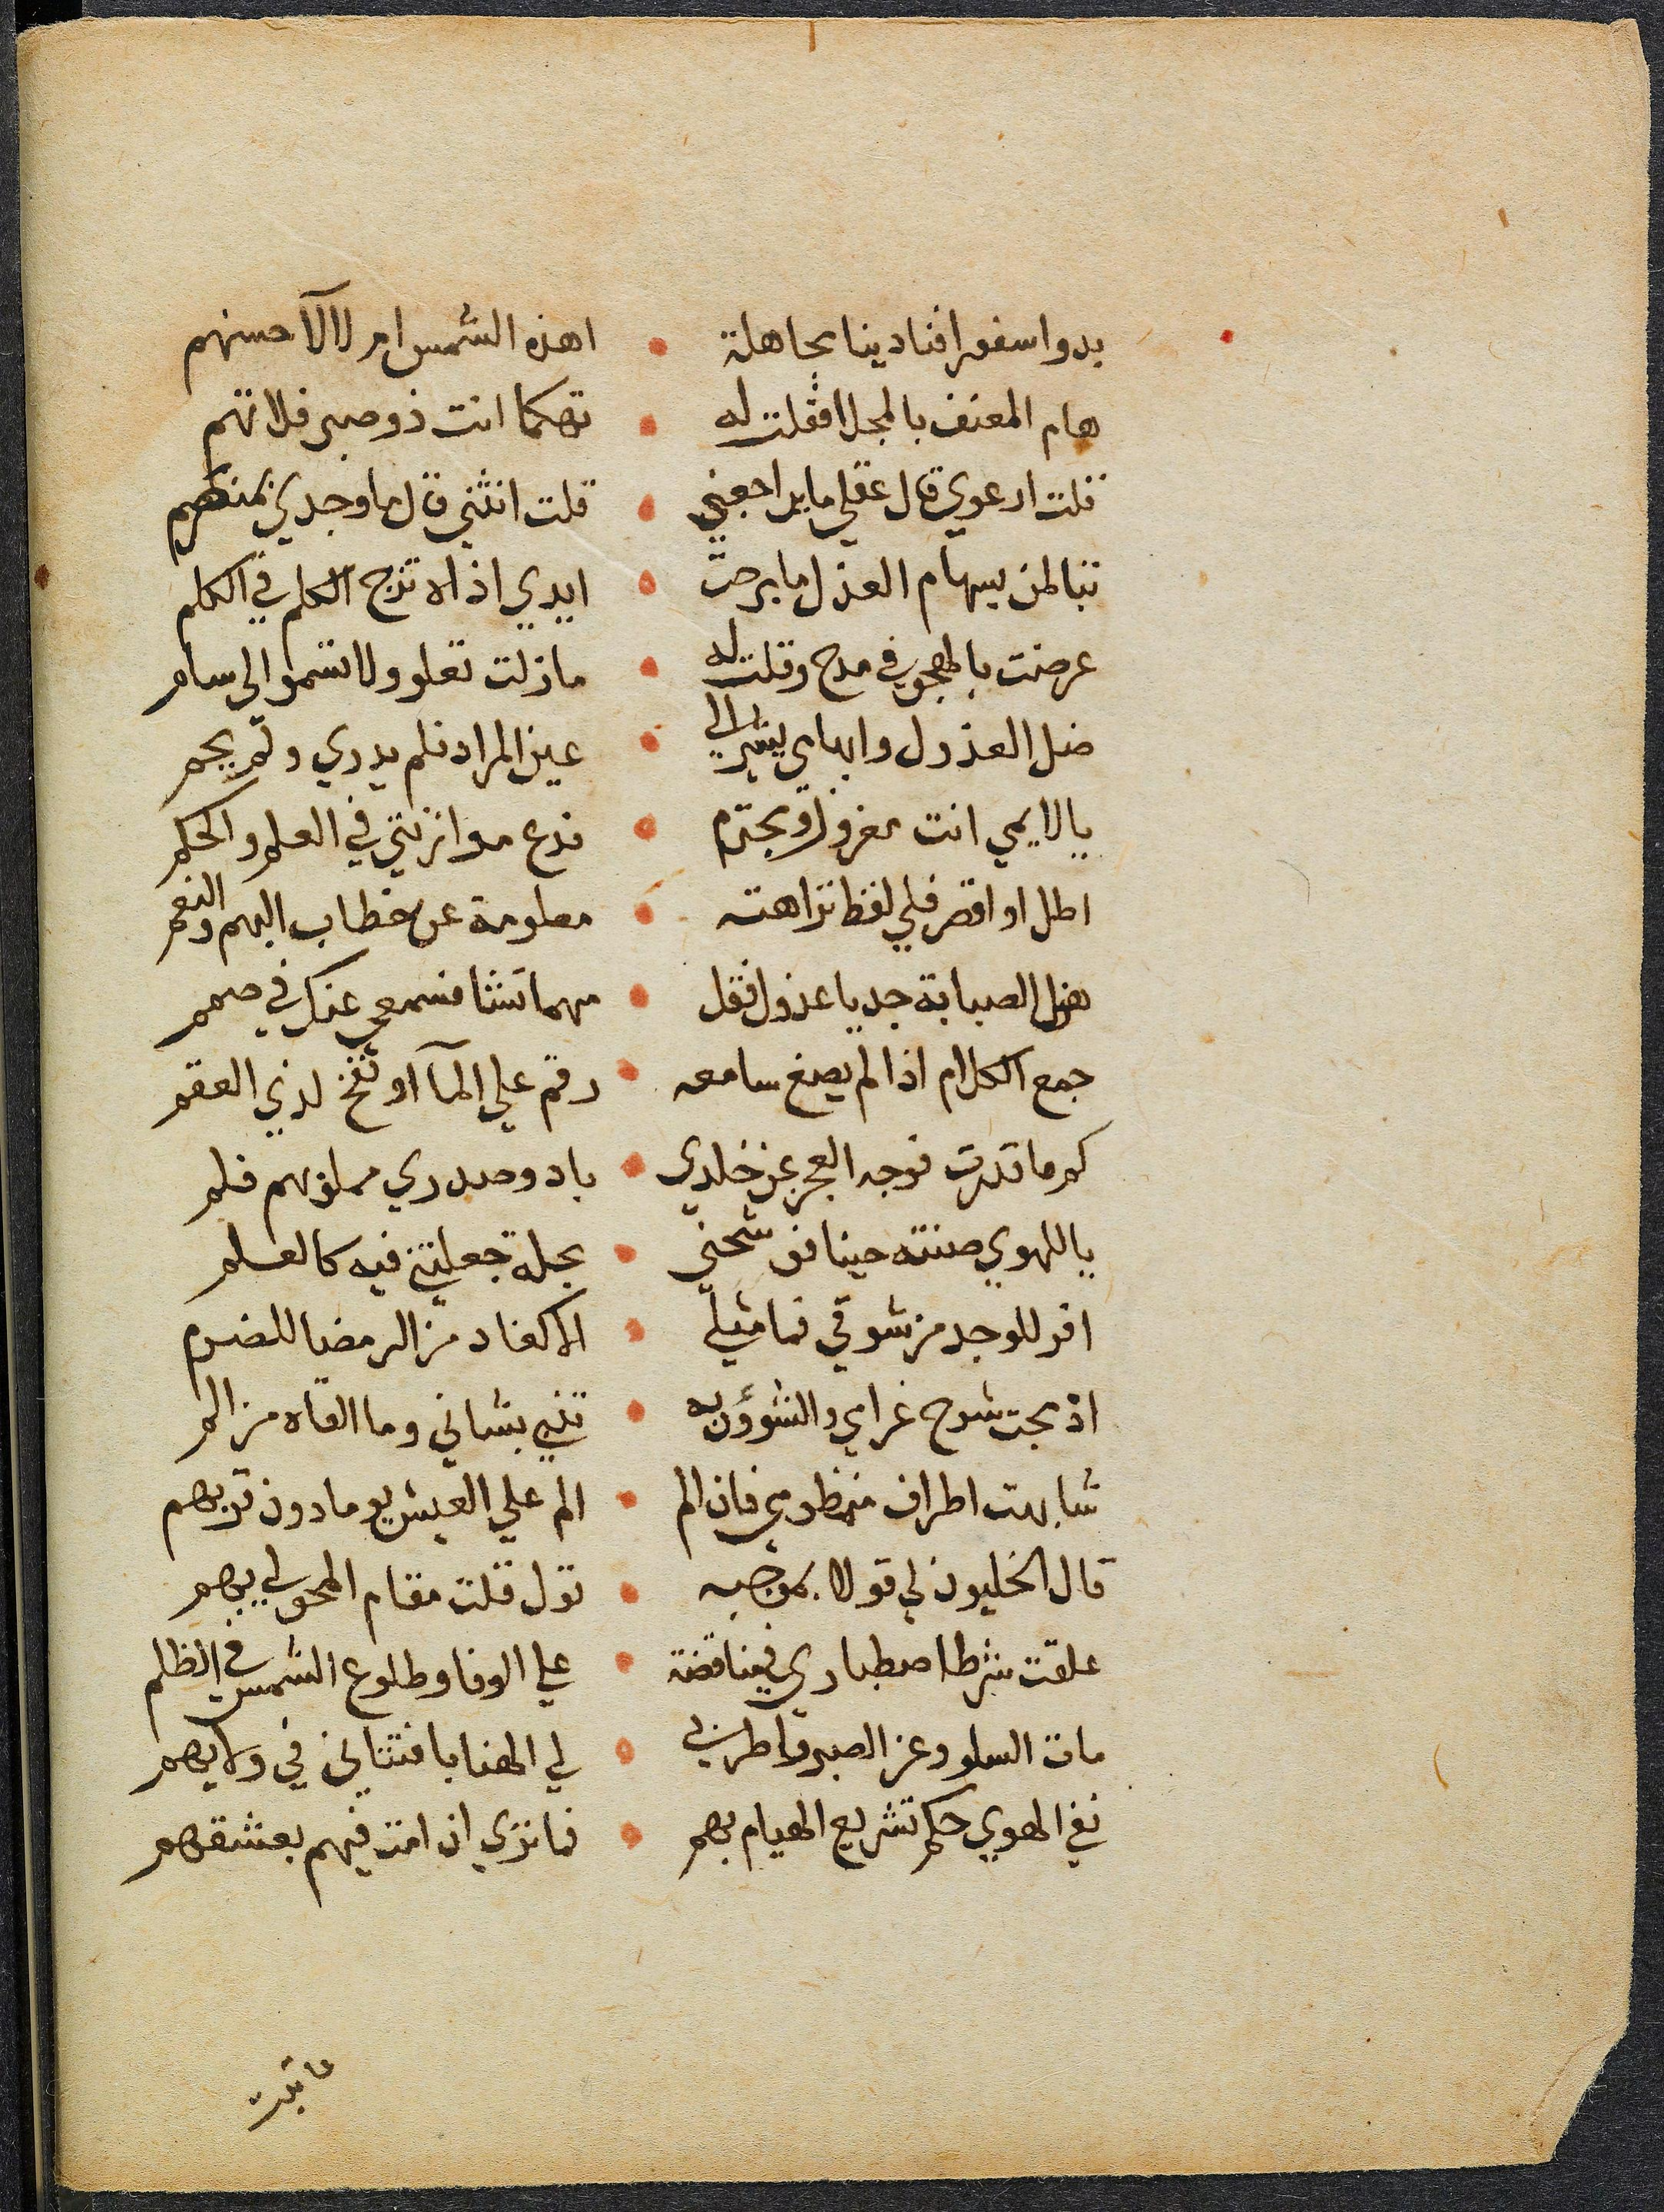 بدوا سفورا فنادينا بجاهلة • اهذه الشمس ام لالآ حسنهم
هام المعنف بالمجلا فقلت له • تهكما انت ذو صبر فلا تهم
قلت ارعوي قال عقلي ما يراجعني • قلت انثني قال ما وجدي بمنصرم
تبا لمن بسهام العذل ما برحت • ايدي اذاه تزج الكلم في الكلم
عرضت بالهجو في مدح وقلت له • ما زلت تعلو ولا تسموا الى سام
ضل العذول وابهامي يشير الى • عين المراد فلم يدري ولم يحم
يا لايمي انت مغرور ومجترم • فدع موازنتي في العلم والحكم
اطل او اقصر فلي لفظ نزاهته • معلومة عن خطاب البهم والنعم
هزل الصبابة جد يا عذول فقل • مهما تشا فسمعي عنك في صمم
جمع الكلام اذا لم يصغ سامعه • رقم علي المآ او نفخ لذي العقم
كم ما قدرت فوجه العجز عن خلدي • باد وصدري مملو بهم فلم
يا للهوي صنته حينا فق شحني • بجلة جعلتني فيه كالعلم
افر للوجد من شوقي فما مثلي • الا كفاد من الرمضا للضرم
اذ بحت شرح غرامي والشؤون به • تنبي بشاني وما القاه من الم
شابهت اطراف منظومي فان الم • الم علي العيش يوما دون قربهم
قال الخليون لي قولا بموجبه • تول قلت مقام المحو لي بهم
علقت شرط اصطباري في مناقضة • علي الوفا وطلوع الشمس في الظلم
مات السلو وعز الصبر واطربي • لي الهنا بافتتاني في ولايهم
نفي الهوي حكم تشريع الهيام بهم • فما نزي ان امت فيهم بعشقهم